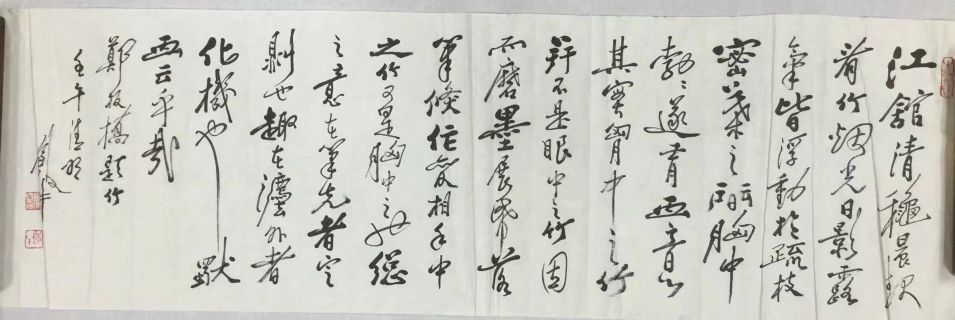 江館清龝晨起
看竹烟光日影露
氣皆浮動於疏枝
密葉之間胸中
勃勃遂有畫意
其實胸中之竹
并不是眼中之竹因
而磨墨展紙落
筆倏作變相手中
之竹又是胸中之也總
之意在筆先者定
則也趣在灋外者
化機也獨
畫云乎哉
鄭板橋題竹
壬午清明